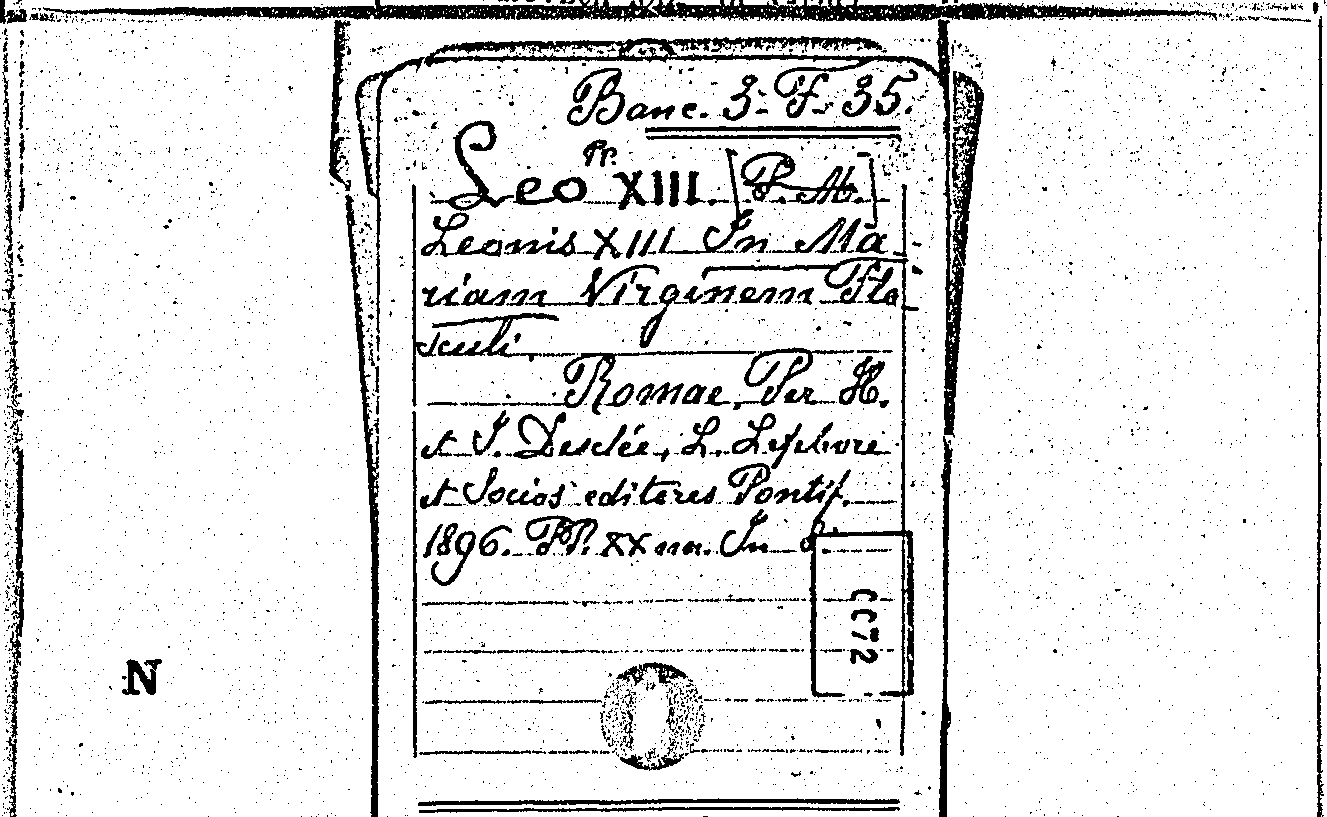 Banc. 3-F-35.
Pp.
Leo XIII. [P. M.]
Leonis XIII In Ma-
riam Virginem Flo-
sculi.
Romae, Per H.
et I. Desclée, L. Lefebvre
et Socios editores Pontif.
1896. PP. XX nn. In 8.
CC72
N